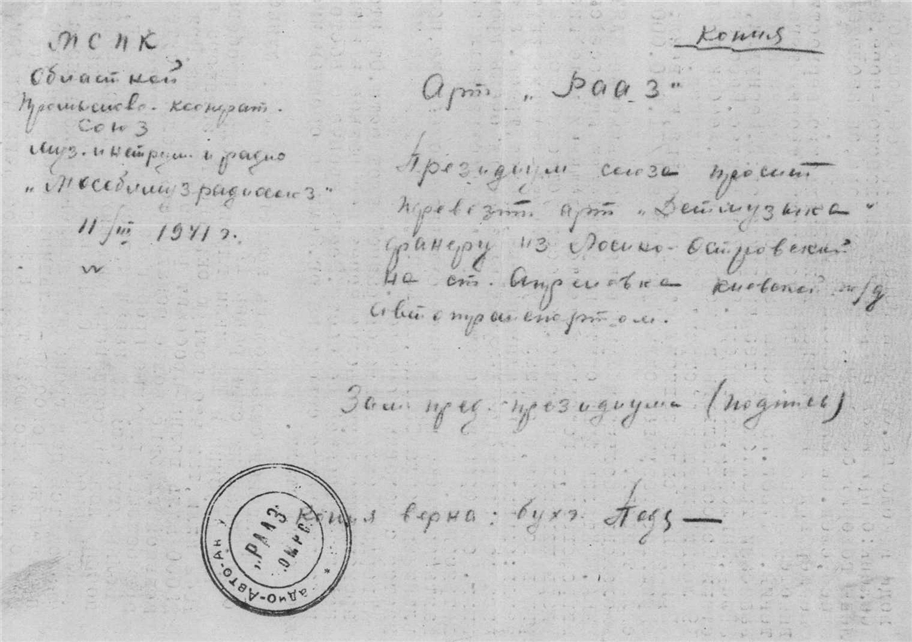 Копия
МСПК
Областной
Промыслово-кооперат.
союз
муз. инструм. и радио
„Мособлмузрадиосоюз"
11/III 1941 г.
Арт. „РААЗ"
Президиум союза просит
перевезти арт. „Детмузыка"
фанеру из Лосино-Островской
на ст. Апрелевка Киевской ж/д
автотранспортом.
Зам. пред. президиума (подпись)
Копия верна: бух.
„РААЗ"
адио-Авто-Ак